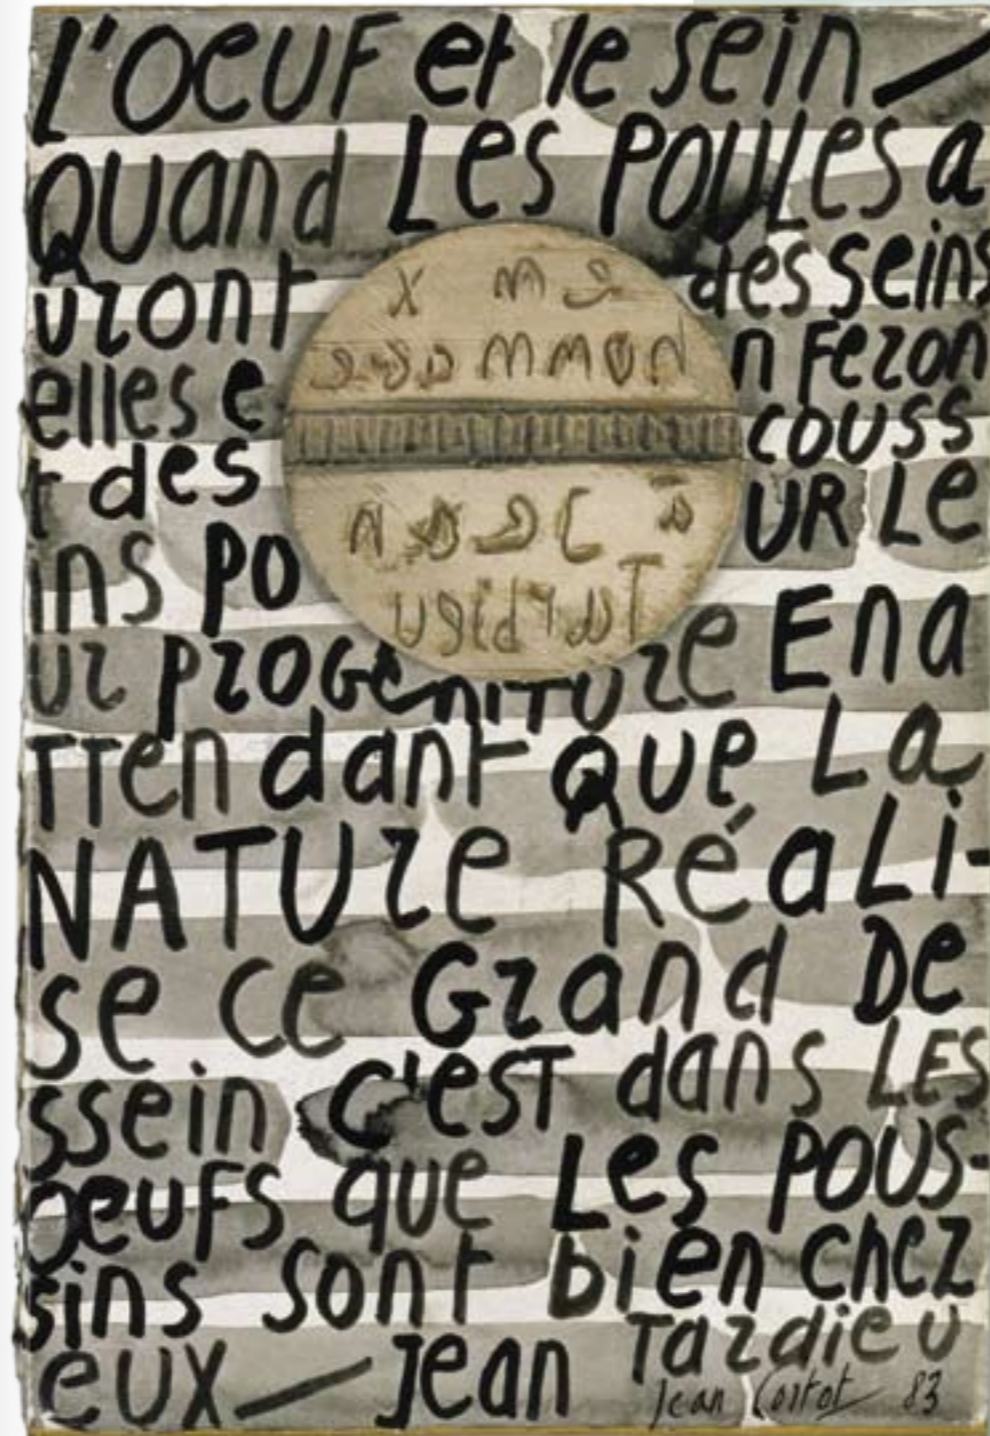 L'OEUF et le Sein —
QUand Les POULes a
uront des seins
elles e n Feron
t des couss
ins PO UR Le
ur PROGENITURE En a
TTendant QUe La
NATURe RéaLi-
se ce Grand De
ssein c'EST dans LES
œUFS que Les POUS-
sins sont bien chez
eux — Jean Tardieu
Jean Cortot 83